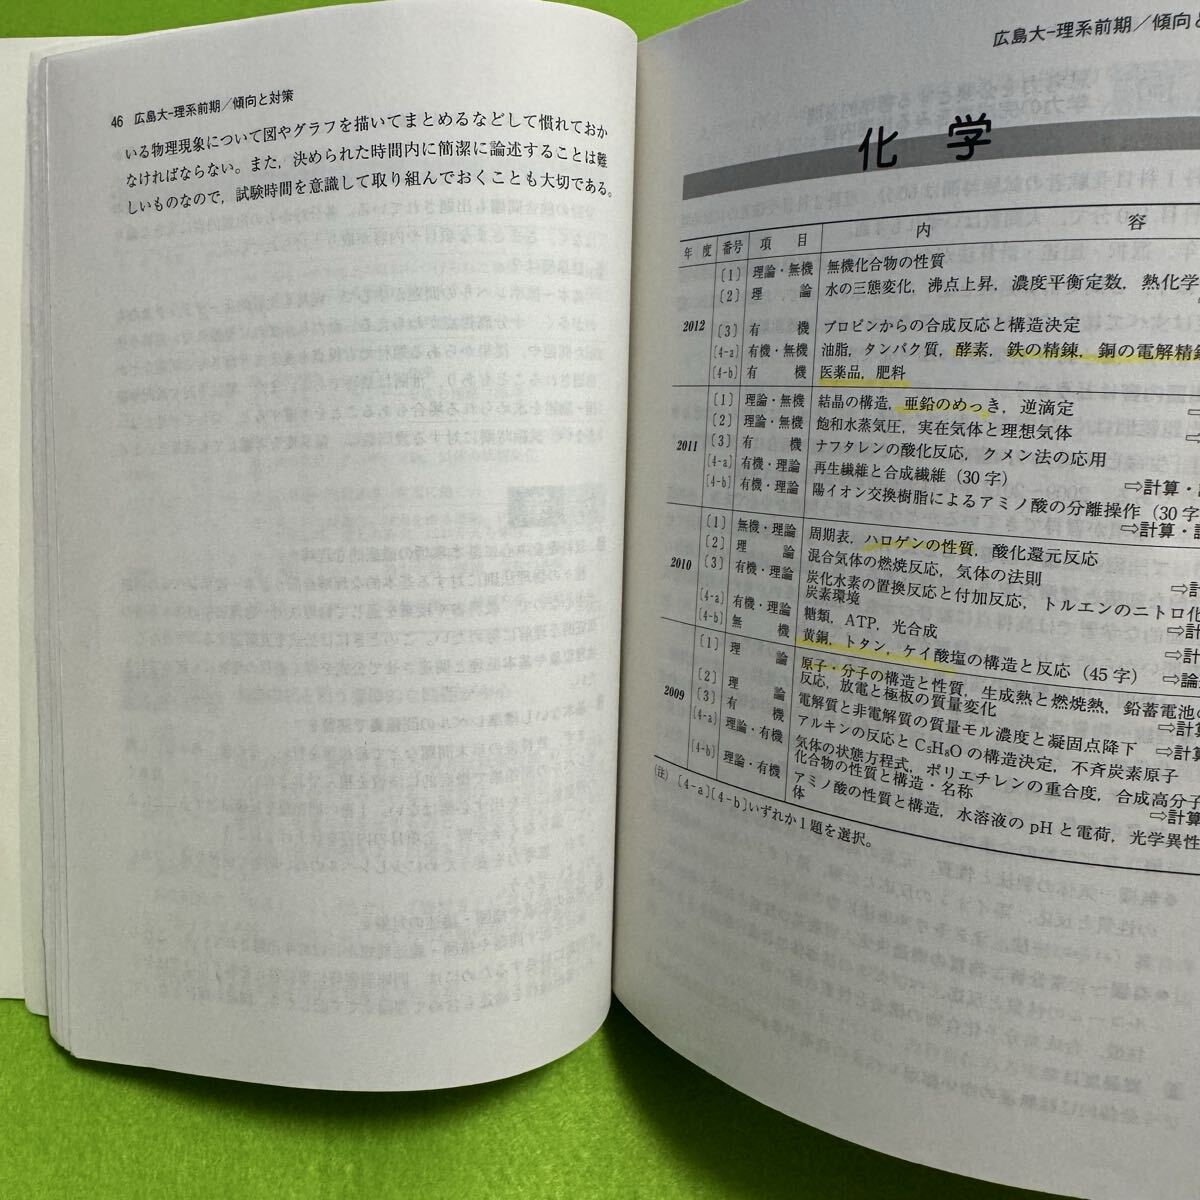 46 広島大-理系前期／傾向と対策
いる物理現象について図やグラフを描いてまとめるなどして慣れておか
なければならない。また，決められた時間内に簡潔に論述することは難
しいものなので，試験時間を意識して取り組んでおくことも大切である。
広島大-理系前期／傾向と
化 学
年 度 番号 項 目 内 容
2012 〔1〕 理論・無機 無機化合物の性質
〔2〕 理 論 水の三態変化，沸点上昇，濃度平衡定数，熱化学
〔3〕 有 機 プロピンからの合成反応と構造決定
〔4-a〕 有機・無機 油脂，タンパク質，酵素，鉄の精錬，銅の電解精錬
〔4-b〕 有 機 医薬品，肥料
2011 〔1〕 理論・無機 結晶の構造，亜鉛のめっき，逆滴定
〔2〕 理論・無機 飽和水蒸気圧，実在気体と理想気体
〔3〕 有 機 ナフタレンの酸化反応，クメン法の応用
〔4-a〕 有機・理論 再生繊維と合成繊維（30字） ⇨計算・
〔4-b〕 有機・理論 陽イオン交換樹脂によるアミノ酸の分離操作（30字
⇨計算・
2010 〔1〕 無機・理論 周期表，ハロゲンの性質，酸化還元反応
〔2〕 理 論 混合気体の燃焼反応，気体の法則 ⇨計
〔3〕 有機・理論 炭化水素の置換反応と付加反応，トルエンのニトロ化
炭素環境 ⇨計
〔4-a〕 有機・理論 糖類，ATP，光合成 ⇨計
〔4-b〕 無 機 黄銅，トタン，ケイ酸塩の構造と反応（45字） ⇨論
2009 〔1〕 理 論 原子・分子の構造と性質，生成熱と燃焼熱，鉛蓄電池の
反応，放電と極板の質量変化 ⇨計算
〔2〕 理 論 電解質と非電解質の質量モル濃度と凝固点降下 ⇨計算
〔3〕 有 機 アルキンの反応とC₅H₈Oの構造決定，不斉炭素原子
〔4-a〕 理論・有機 気体の状態方程式，ポリエチレンの重合度，合成高分子
化合物の性質と構造・名称 ⇨計算
〔4-b〕 理論・有機 アミノ酸の性質と構造，水溶液のpHと電荷，光学異性
体
（注） 〔4-a〕〔4-b〕いずれか1題を選択。